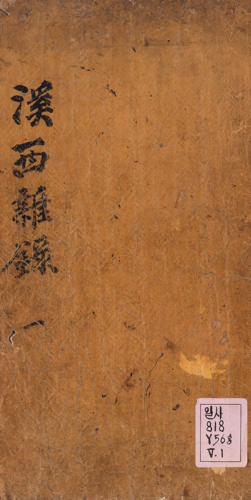 溪西雜錄 一
일사
818
Y56g
V.1